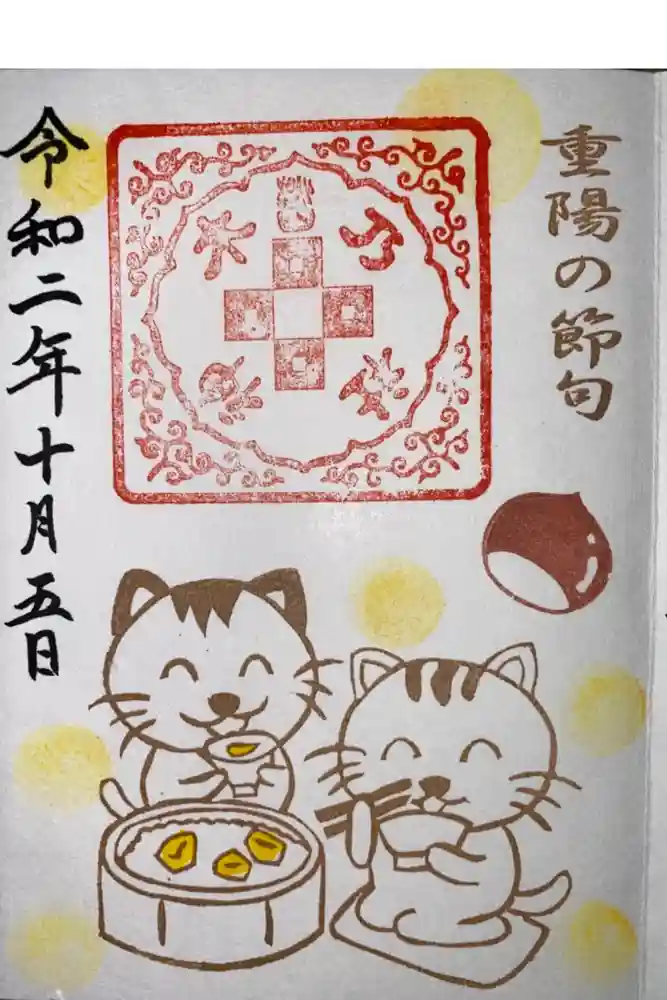 重陽の節句
令和二年十月五日